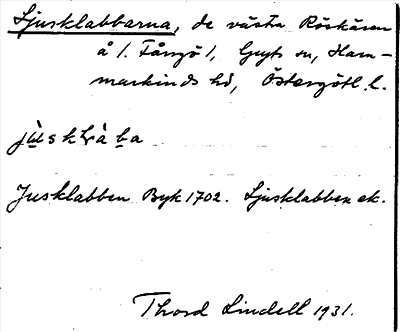 Ljusklabbarna, de västa Röskären
å l. Fångö l, Gryts sn, Ham-
markinds hd, Östergötl. l.
Jusklabben Byk 1702. Ljusklabben ek.
Thord Lindell 1931.